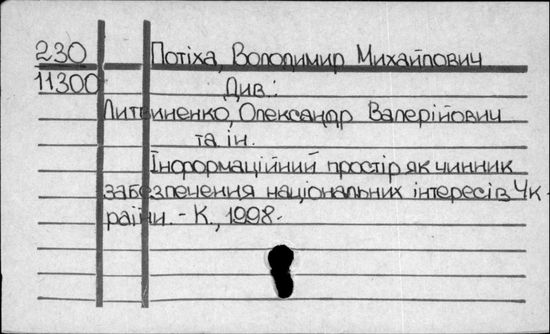 230 Потіха, Володимир Михайлович
11300 Див.:
Литвиненко, Олександр Валерійович
та ін.
Інформаційний простір як чинник
забезпечення національних інтересів Ук-
раїни. - К., 1998.